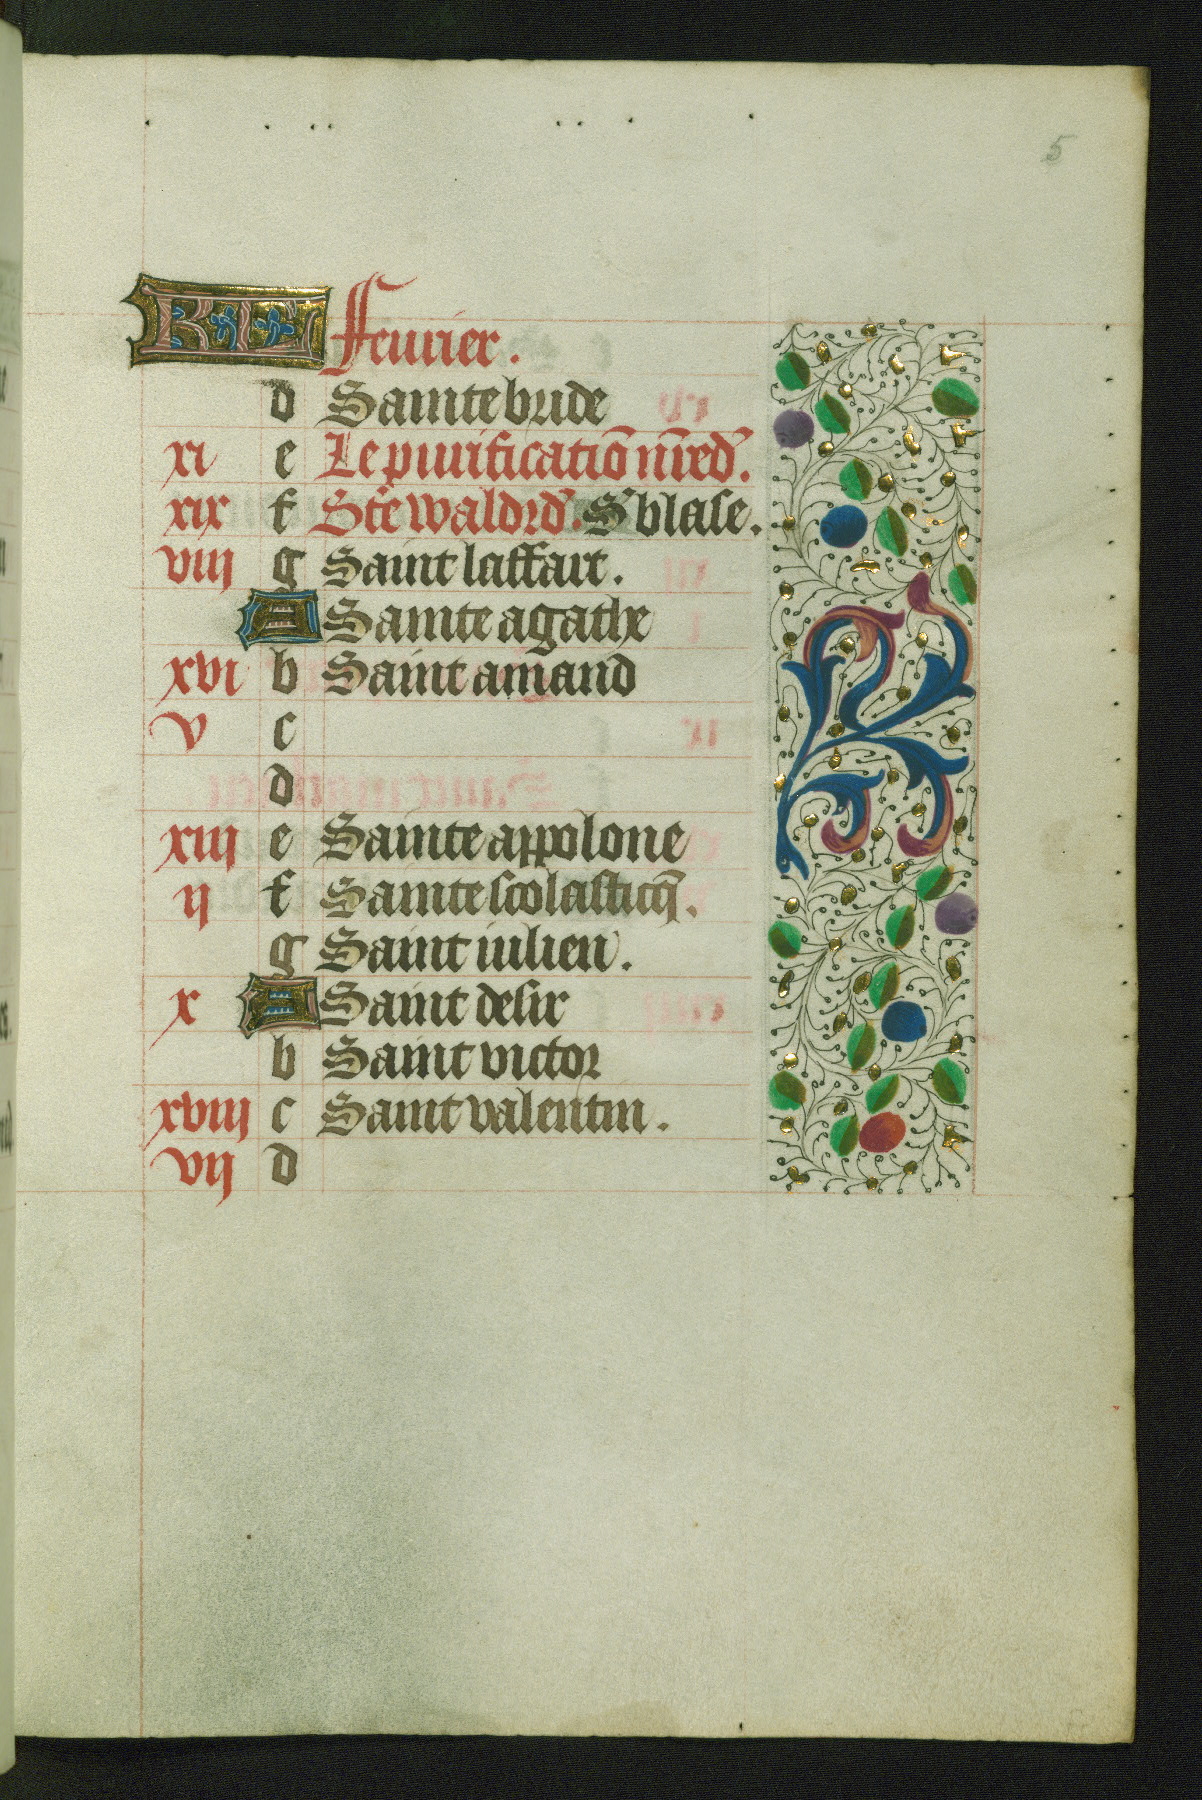 5
KL Feurier.
d Sainte bride
xi e Le purificatiō n̄red'.
xix f Ste waldrd'. St blase.
viii g Saint liffart.
A Sainte agathe
xvi b Saint amand
v c
d
xiii e Sainte appolone
ij f Sainte scolasticq̄.
g Saint iulien.
x A Saint desir
b Saint victor
xviii c Saint valentin.
vij d